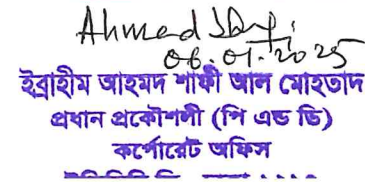 Ahmed
06.01.2025
ইব্রাহীম আহমদ শাফী আল মোহতাদ
প্রধান প্রকৌশলী (পি এন্ড ডি)
কর্পোরেট অফিস